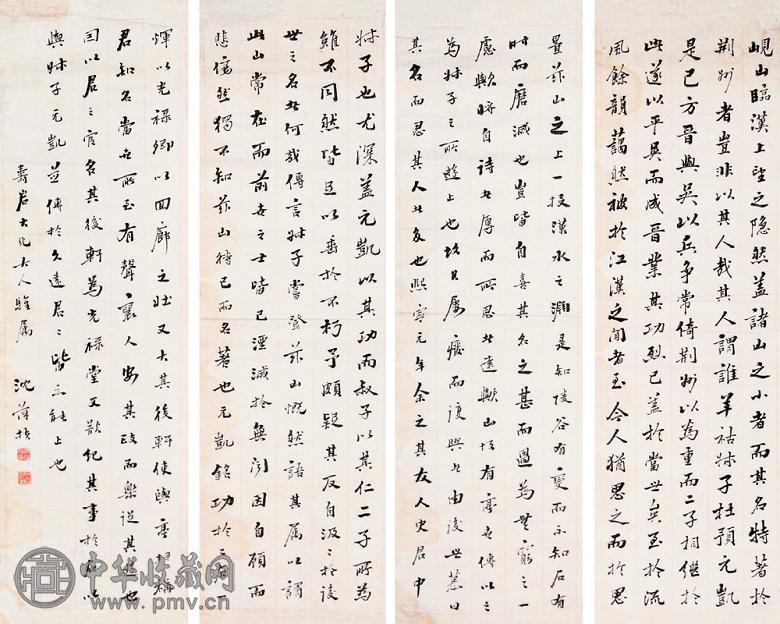 峴山臨漢上望之隱然蓋諸山之小者而其名特著於
荊州者豈非以其人哉其人謂誰羊祜叔子杜預元凱
是已方晉與吳以兵爭常倚荊州以為重而二子相繼於
此遂以平吳而成晉業其功烈已蓋於當世矣至於流
風餘韻藹然被於江漢之間者至今人猶思之而於思
置茲山之上一投漢水之淵是知陵谷有變而不知石有
時而磨滅也豈皆自喜其名之甚而過為無窮之
慮歟將自待者厚而所思者遠歟山故有亭世傳以
為叔子之所遊止也故其屢廢而復興者由後世慕
其名而思其人者多也熙寧元年余之其友人史君中
叔子也尤深蓋元凱以其功而叔子以其仁二子所為
雖不同然皆足以垂於不朽予頗疑其反自汲々於後
世之名者何哉傳言叔子嘗登茲山慨然語其屬以謂
此山常在而前世之士皆已湮滅於無聞因自顧而
悲傷然獨不知茲山待己而名著也元凱銘功於二石一
煇以光祿卿以回廊之壯又大其後軒使與亭相稱
君知名當世所至有聲襄人安其政而樂從其遊也
因以君之官名其後軒為光祿堂又欲紀其事於石以
與叔子元凱並傳於久遠君々皆不能止也
壽岩大兄大人雅屬 沈葆楨
中华收藏网
www.pmv.cn